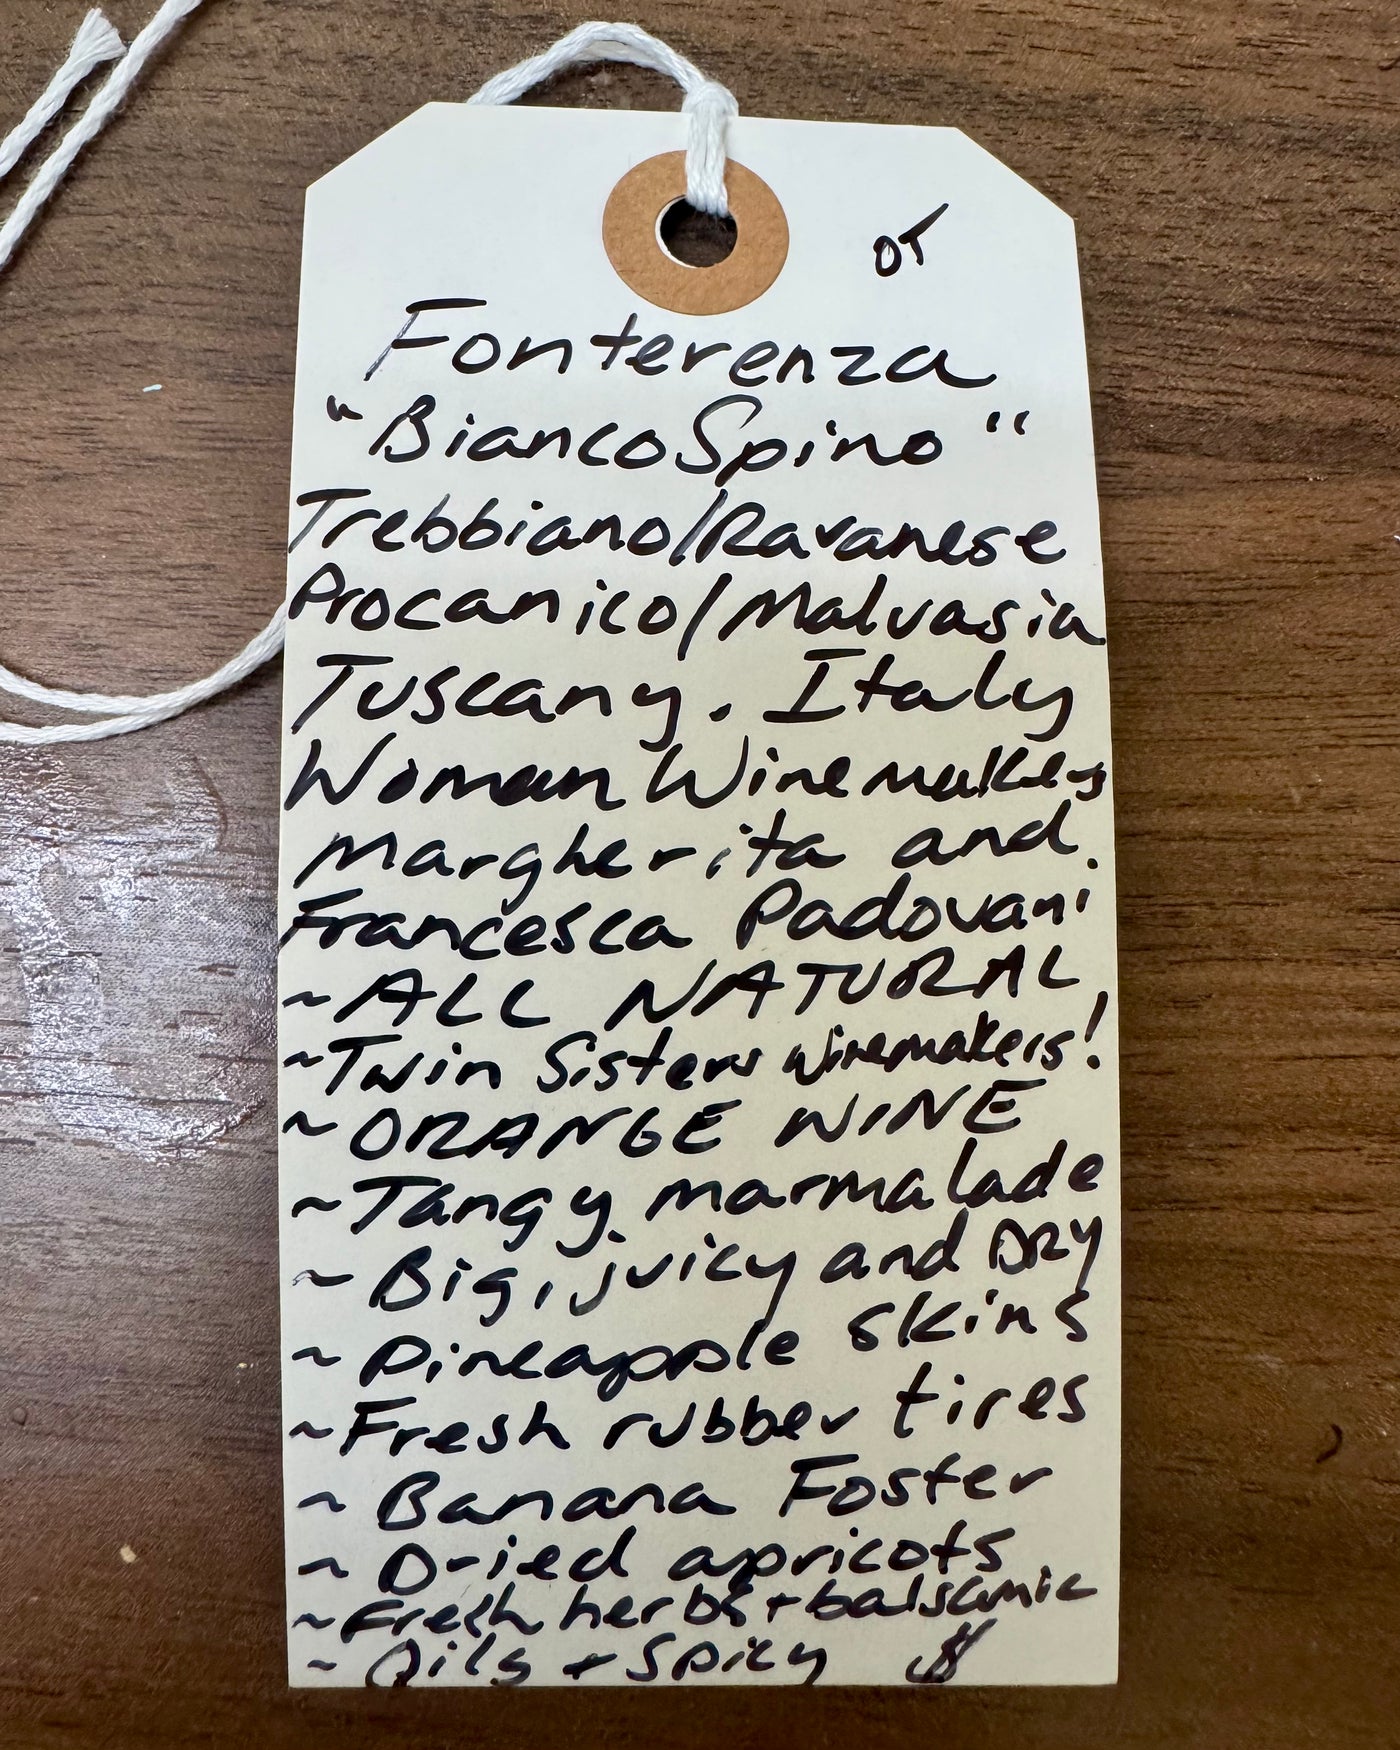 OT
Fonterenza
"BiancoSpino"
Trebbiano/Ravanese
Procanico/Malvasia
Tuscany. Italy
Woman Winemakers
Margherita and
Francesca Padovani
~ALL NATURAL
~Twin Sisters winemakers!
~ORANGE WINE
~Tangy marmalade
~Big, juicy and DRY
~Pineapple skins
~Fresh rubber tires
~Banana Foster
~Dried apricots
~Fresh herbs + balsamic
~Oily + Spicy